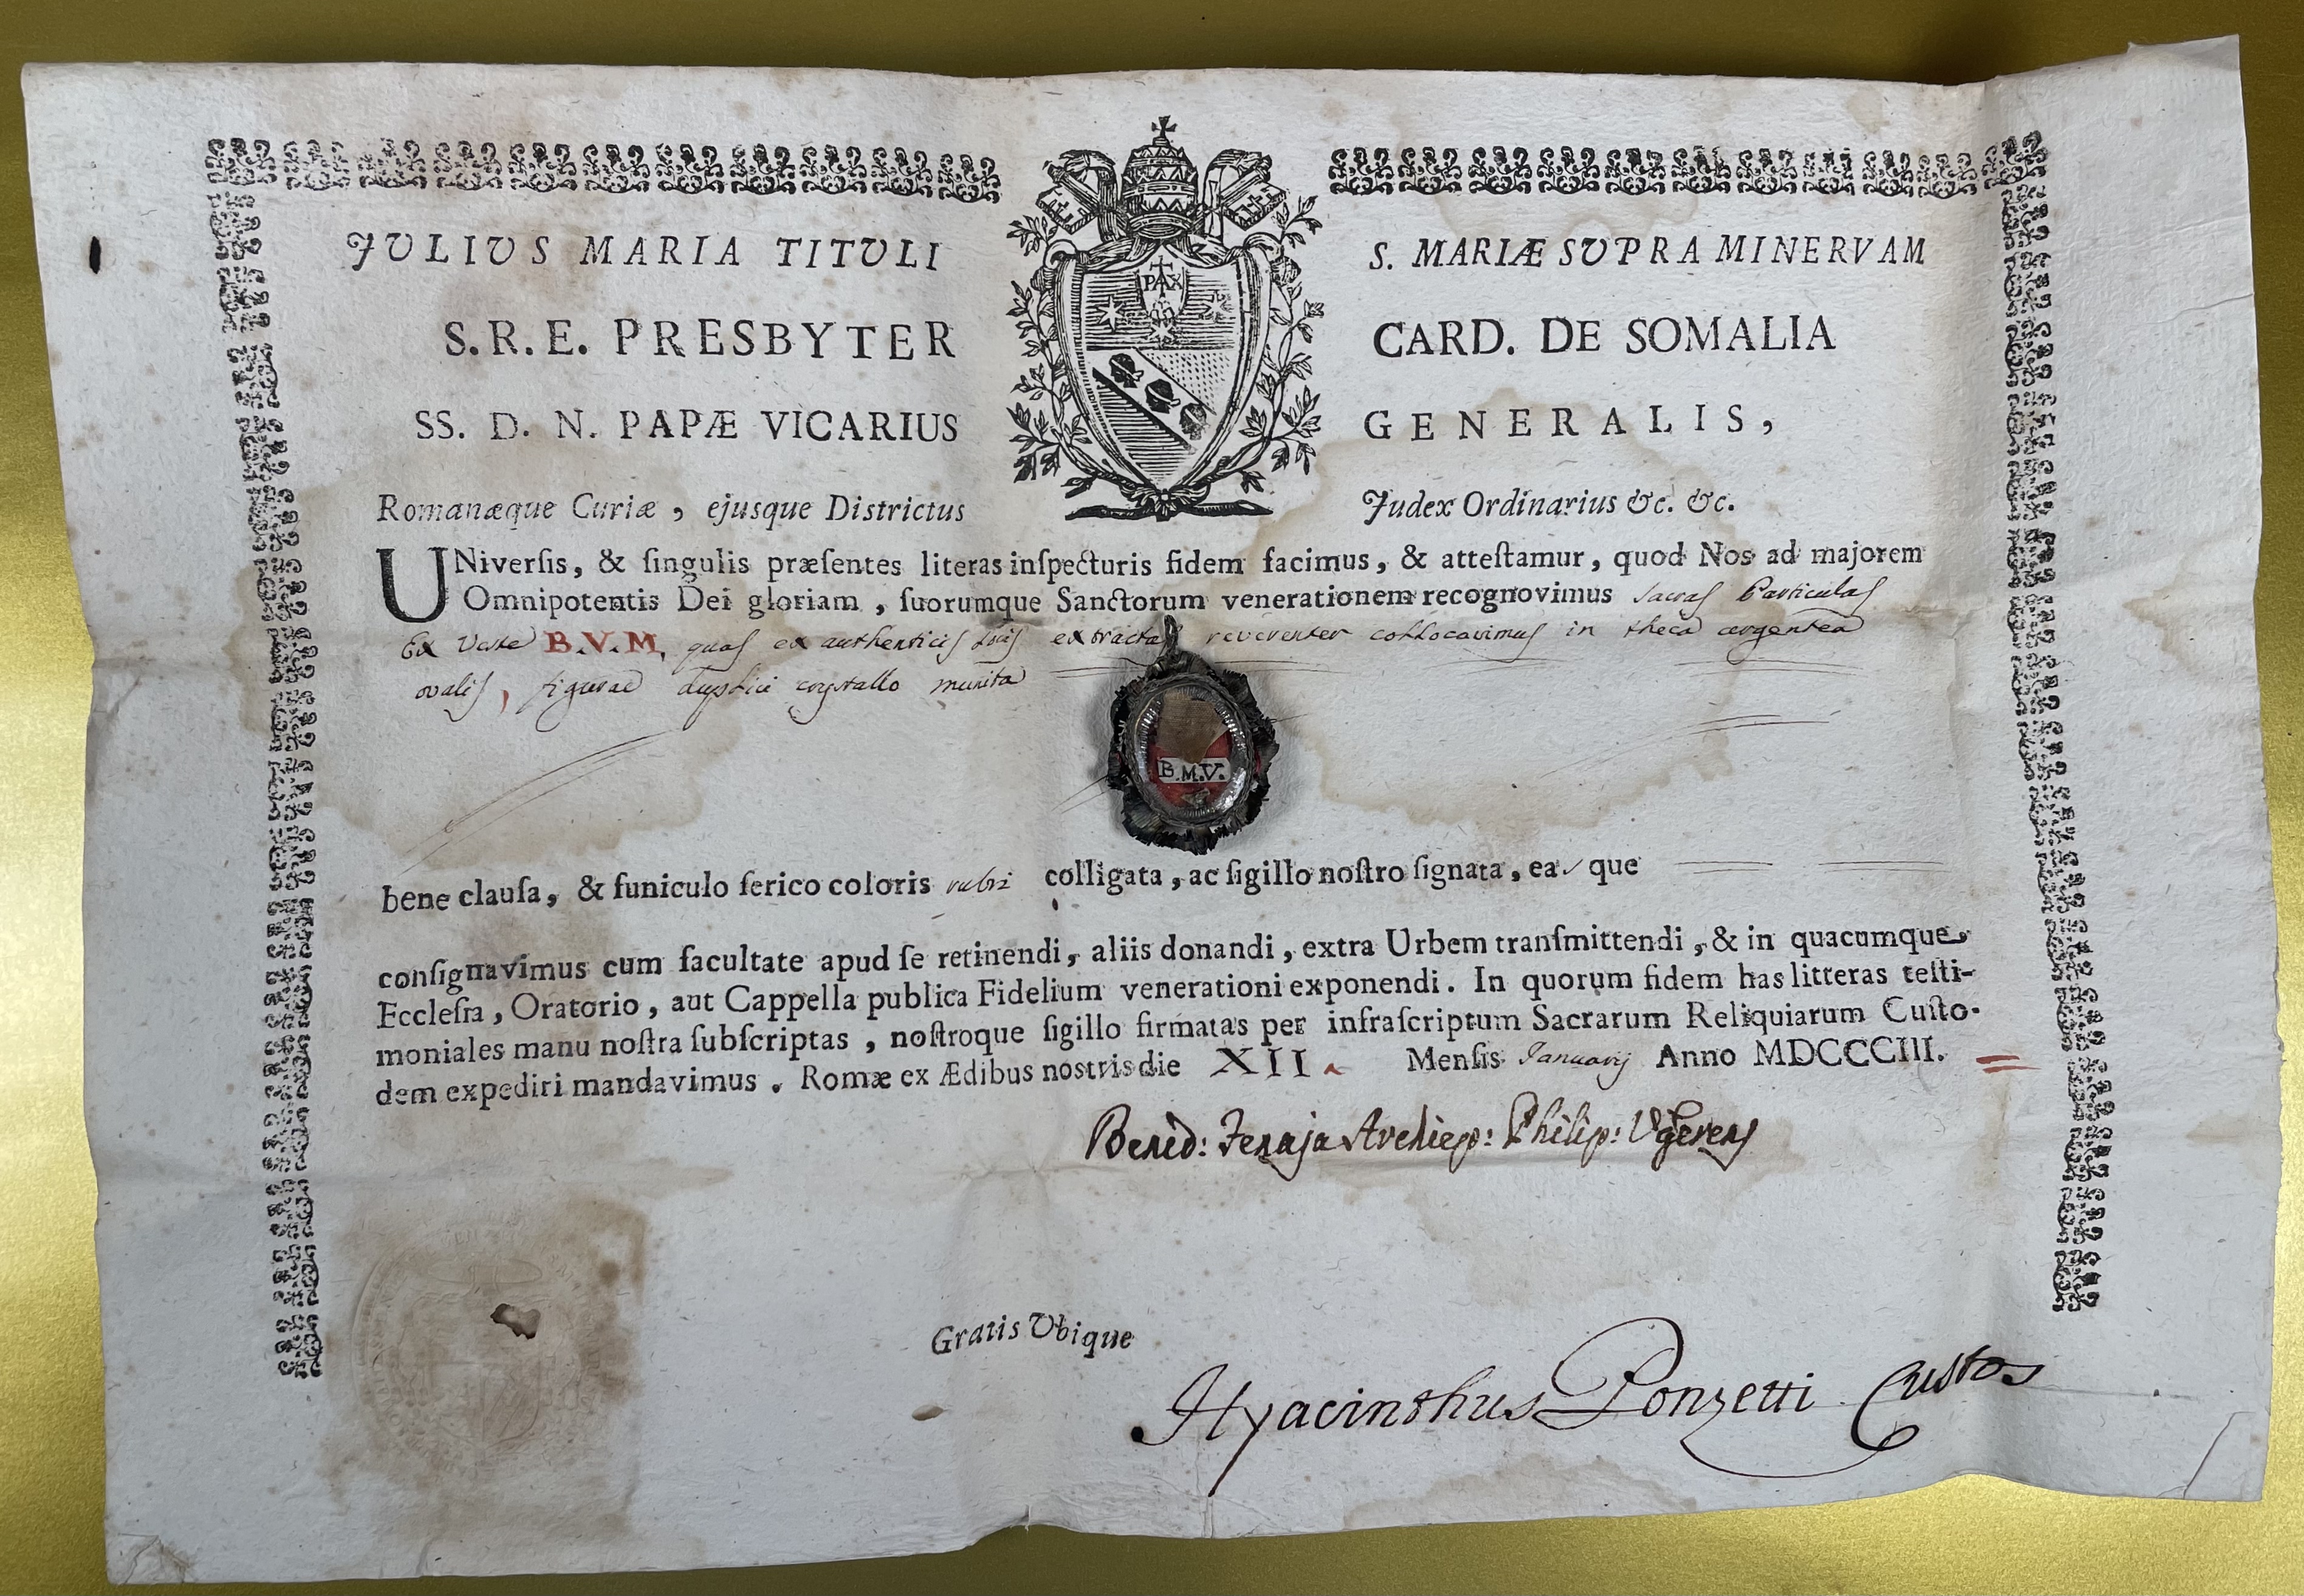 JULIUS MARIA TITULI S. MARIÆ SUPRA MINERVAM
S.R.E. PRESBYTER CARD. DE SOMALIA
SS. D. N. PAPÆ VICARIUS GENERALIS,
Romanæque Curiæ, ejusque Districtus Judex Ordinarius &c. &c.
PAX
UNiverſis, & ſingulis præſentes literas inſpecturis fidem facimus, & atteſtamur, quod Nos ad majorem
Omnipotentis Dei gloriam, ſuorumque Sanctorum venerationem recognovimus sacras Particulas
Ex Veste B.V.M. quas ex authenticis Locis extractas reverenter collocavimus in theca argentea
ovalis, figurae duplici crystallo munita
B.M.V.
bene clauſa, & funiculo ſerico coloris rubri colligata, ac ſigillo noſtro ſignata, easque
conſignavimus cum facultate apud ſe retinendi, aliis donandi, extra Urbem tranſmittendi, & in quacumque
Eccleſia, Oratorio, aut Cappella publica Fidelium venerationi exponendi. In quorum fidem has litteras teſti-
moniales manu noſtra ſubſcriptas, noſtroque ſigillo firmatas per infraſcriptum Sacrarum Reliquiarum Cuſto-
dem expediri mandavimus. Romæ ex Ædibus nostris die XII Menſis Januarij Anno MDCCCIII.
Bened: Fenaja Archiep: Philip: Vgerens
Gratis Ubique
Hyacinthus Ponzetti Custos